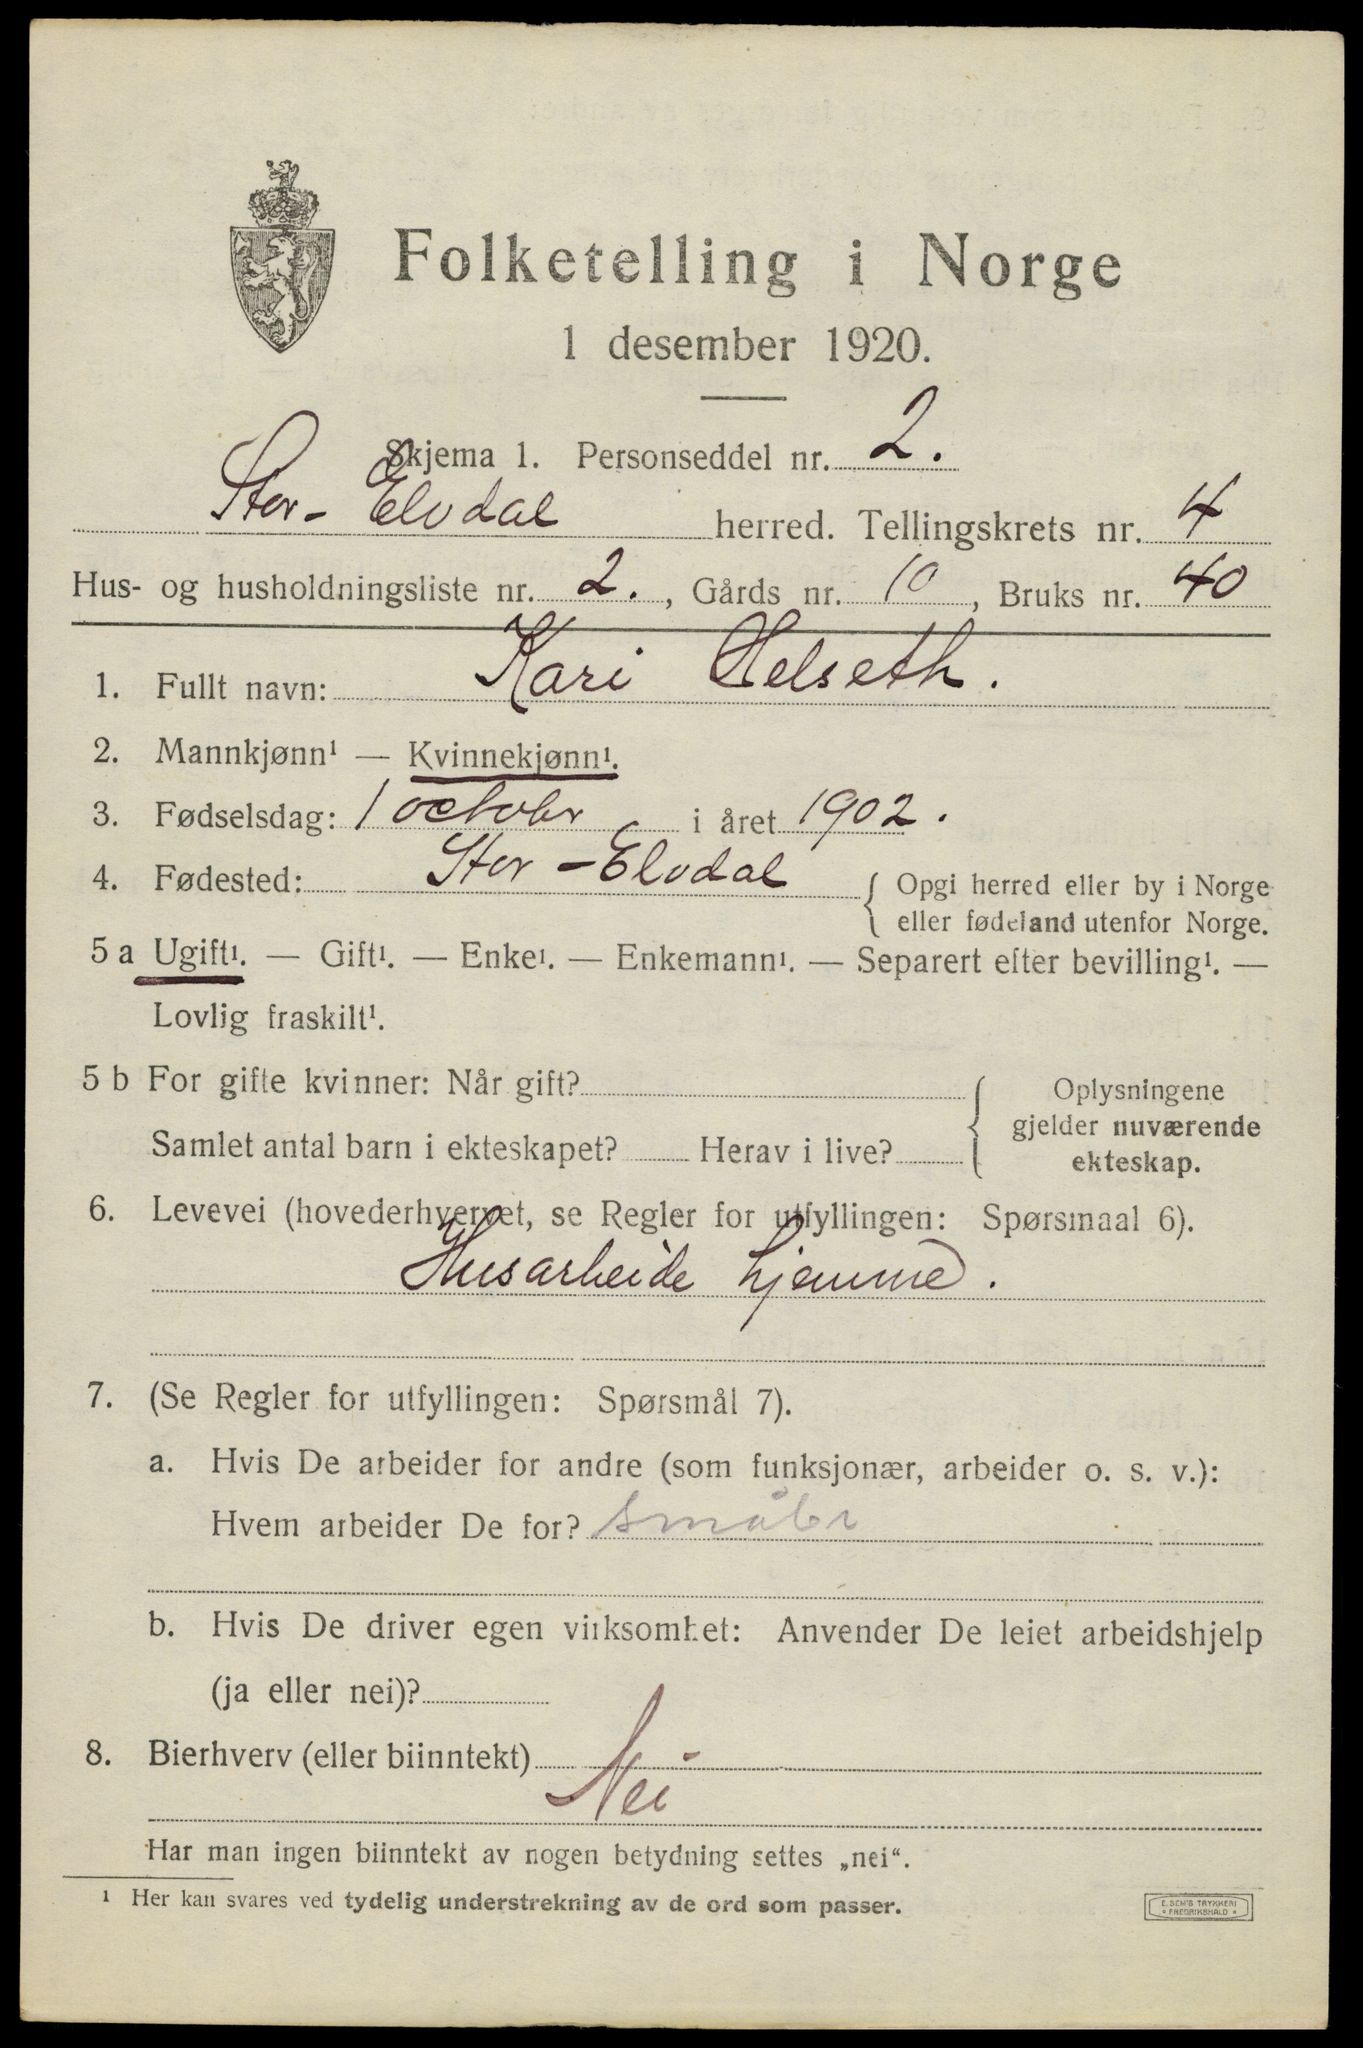 Folketelling i Norge
1 desember 1920.
Skjema 1. Personseddel nr. 2.
Stor-Elvdal herred. Tellingskrets nr. 4
Hus- og husholdningsliste nr. 2., Gårds nr. 10, Bruks nr. 40
1. Fullt navn: Kari Helseth.
2. Mannkjønn¹ — Kvinnekjønn¹.
3. Fødselsdag: 1 october i året 1902.
4. Fødested: Stor-Elvdal { Opgi herred eller by i Norge
eller fødeland utenfor Norge.
5 a Ugift¹. — Gift¹. — Enke¹. — Enkemann¹. — Separert efter bevilling¹. —
Lovlig fraskilt¹.
5 b For gifte kvinner: Når gift?
Samlet antal barn i ekteskapet? Herav i live?
{ Oplysningene
gjelder nuværende
ekteskap.
6. Levevei (hovederhvervet, se Regler for utfyllingen: Spørsmaal 6).
Husarbeide hjemme.
7. (Se Regler for utfyllingen: Spørsmål 7).
a. Hvis De arbeider for andre (som funksjonær, arbeider o. s. v.):
Hvem arbeider De for? småbr
b. Hvis De driver egen virksomhet: Anvender De leiet arbeidshjelp
(ja eller nei)?
8. Bierhverv (eller biinntekt)
Nei
Har man ingen biinntekt av nogen betydning settes „nei“.
¹ Her kan svares ved tydelig understrekning av de ord som passer.
E. SEM'S TRYKKERI
* FREDRIKSHALD *